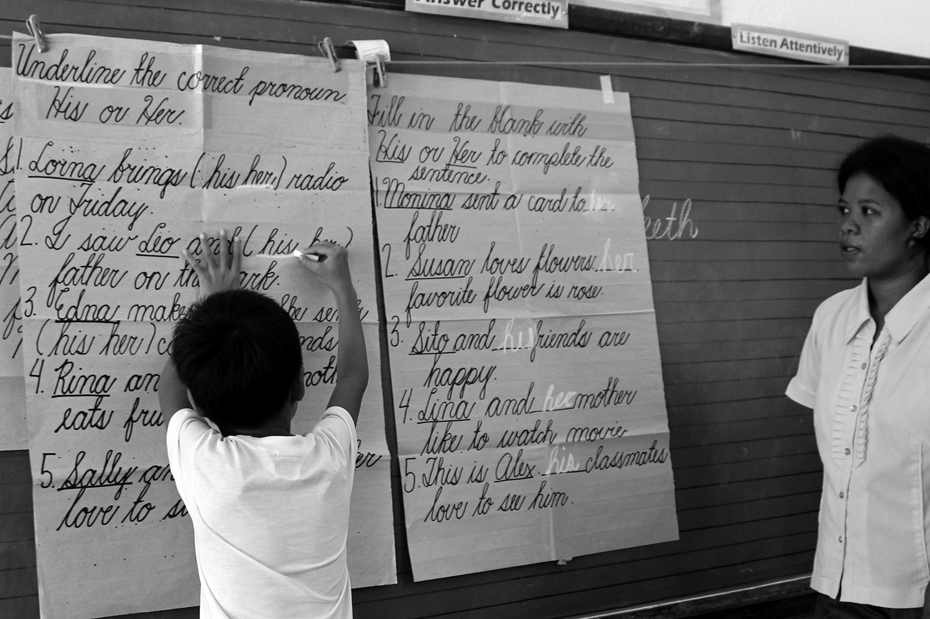 Answer Correctly
Listen Attentively
Underline the correct pronoun
His or Her.
1. Lorna brings (his her) radio
on Friday.
2. I saw Leo and (his her)
father on the park.
3. Edna makes
(his her)
4. Rina
eats
5. Sally
love to
Fill in the blank with
His or Her to complete the
sentence.
1. Monina sent a card to her
father
2. Susan loves flowers. her
favorite flower is rose.
3. Sito and his friends are
happy.
4. Lina and her mother
like to watch movie.
5. This is Alex. his classmates
love to see him.
keth